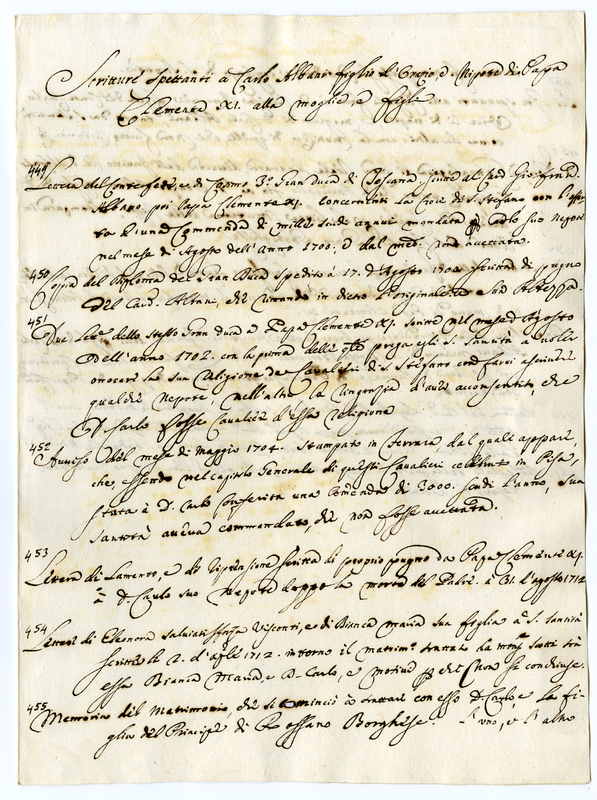 Scritture spettanti à Carlo Albani figlio d'Orazio, e Nipote di Papa
Clemente XI. alla moglie, e figli
449 Lettera del Conte Fede, e di Cosmo 3º Gran Duca di Toscana, scritta al Card. Gio. Fran.
Albano poi Papa Clemente XI. concernenti la Croce di S. Stefano con l'offer
ta d'una Commenda di mille scudi annui mandata à Carlo suo Nepote
nel mese di Agosto dell'Anno 1700: e dal med. non accettata.
450 Copia del Diploma del Gran Duca spedito à 17. d'Agosto 1700 scritta di pugno
del Card. Albani, che rimandò in dietro l'originale à Sua Altezza.
451 Due lre dello stesso Gran duca à Papa Clemente XI. scritte nel mese d'Agosto
dell'anno 1702. con la prima delle qli prega egli S. Santità à voler
onorare la sua Religione de Cavalieri di S. Stefano con farci ascrivere
qualche Nepote, nell'altra la ringrazia d'aver acconsentito, che
D. Carlo fosse Cavaliere d'essa Religione
452 Avviso del mese di Maggio 1704. stampato in Ferrara, dal quale appare,
che essendo nel capitolo Generale di questi Cavalieri celebrato in Pisa,
stata à D. Carlo conferita una Comenda di 3000. scudi l'anno, Sua
Santità aveva comandato, che non fosse accettata.
453 Lettera di Lamento, e di riprensione scritta di proprio pugno da Papa Clemente XI.
à D. Carlo suo Nepote doppo la morte del Padre. à 31. d'Agosto 1712
454 Lettere di Eleonora Visconti, e di Bianca Maria sua figlia à S. Santità
scritte li 2. d'aple 1712. intorno il matrim. trattato da monsr Scotti trà
essa Bianca Maria, e D. Carlo, e motivi che non se concluse.
455 Memorie del Matrimonio, che si cominciò à trattare con esso D. Carlo, e la fi-
glia del Principe di Rossano Borghese. l'uno, e l'altro